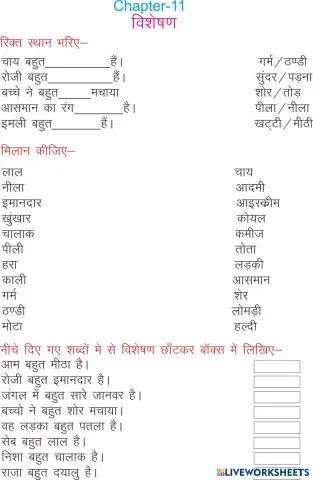 Chapter-11
विशेषण
रिक्त स्थान भरिए–
चाय बहुत__________हैं। गर्म/ठण्डी
रोजी बहुत__________हैं। सुंदर/पड़ना
बच्चे ने बहुत_____मचाया शोर/तोड़
आसमान का रंग________है। पीला/नीला
इमली बहुत________हैं। खट्टी/मीठी
मिलान कीजिए–
लाल चाय
नीला आदमी
इमानदार आइस्कीम
खुंखार कोयल
चालाक कमीज
पीली तोता
हरा लड़की
काली आसमान
गर्म शेर
ठण्डी लोमड़ी
मोटा हल्दी
नीचे दिए गए शब्दों मे से विशेषण छाँटकर बॉक्स में लिखिए–
आम बहुत मीठा है।
रोजी बहुत इमानदार है।
जंगल में बहुत सारे जानवर है।
बच्चो ने बहुत शोर मचाया।
वह लड़का बहुत पतला है।
सेब बहुत लाल है।
निशा बहुत चालाक है।
राजा बहुत दयालु है।
LIVEWORKSHEETS